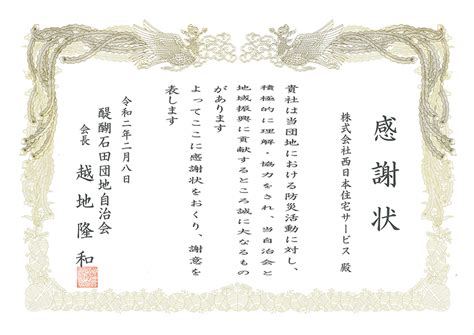 感謝状
株式会社西日本住宅サービス 殿
貴社は当団地における防災活動に対し、
積極的に理解・協力をされ、当自治会と
地域振興に貢献するところ誠に大なるもの
があります
よってここに感謝状をおくり、謝意を
表します
令和二年二月八日
醍醐石田団地自治会
会長 越地隆和